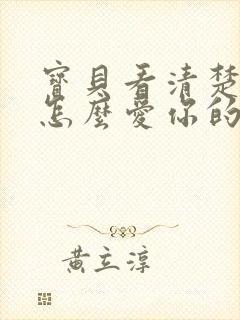 寶貝看清楚
怎麼愛你的
黃立淳